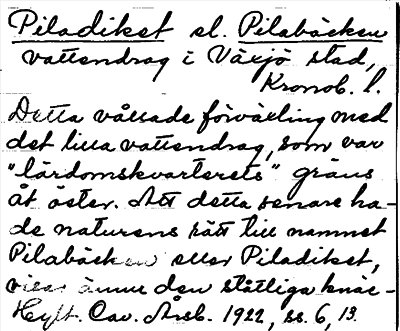 Piladiket el. Pilabäcken
vattendrag i Växjö stad,
Kronob. l.
Detta vållade förväxling med
det lilla vattendrag, som var
"lärdomskvarterets" gräns
åt öster. Att detta senare ha-
de naturens rätt till namnet
Pilabäcken eller Piladiket,
visar ännu den ståtliga knäc-
Hylt. Cav. Årsb. 1922, ss. 6, 13.